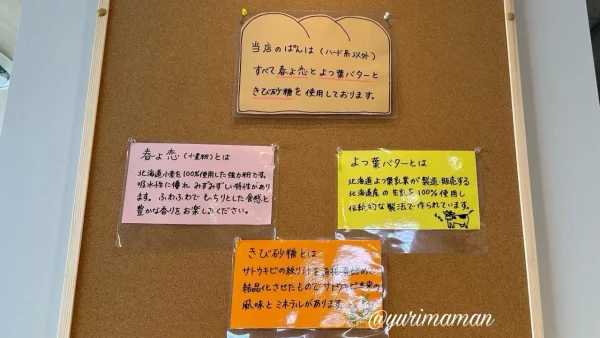 当店のぱんは（ハード系以外）
すべて春よ恋とよつ葉バターと
きび砂糖を使用しております。
春よ恋（小麦粉）とは
北海道小麦を100%使用した強力粉です。
吸水性に優れ みずみずしい特性があり
ます。ふわふわで もっちりとした食感と
豊かな香りをお楽しみください。
よつ葉バターとは
北海道よつ葉乳業が製造・販売する
北海道産の生乳を100%使用し
伝統的な製法で作られています。
きび砂糖とは
サトウキビの絞り汁を
結晶化させたもので サトウキビ本来の
風味とミネラルがあります。
@yurimaman